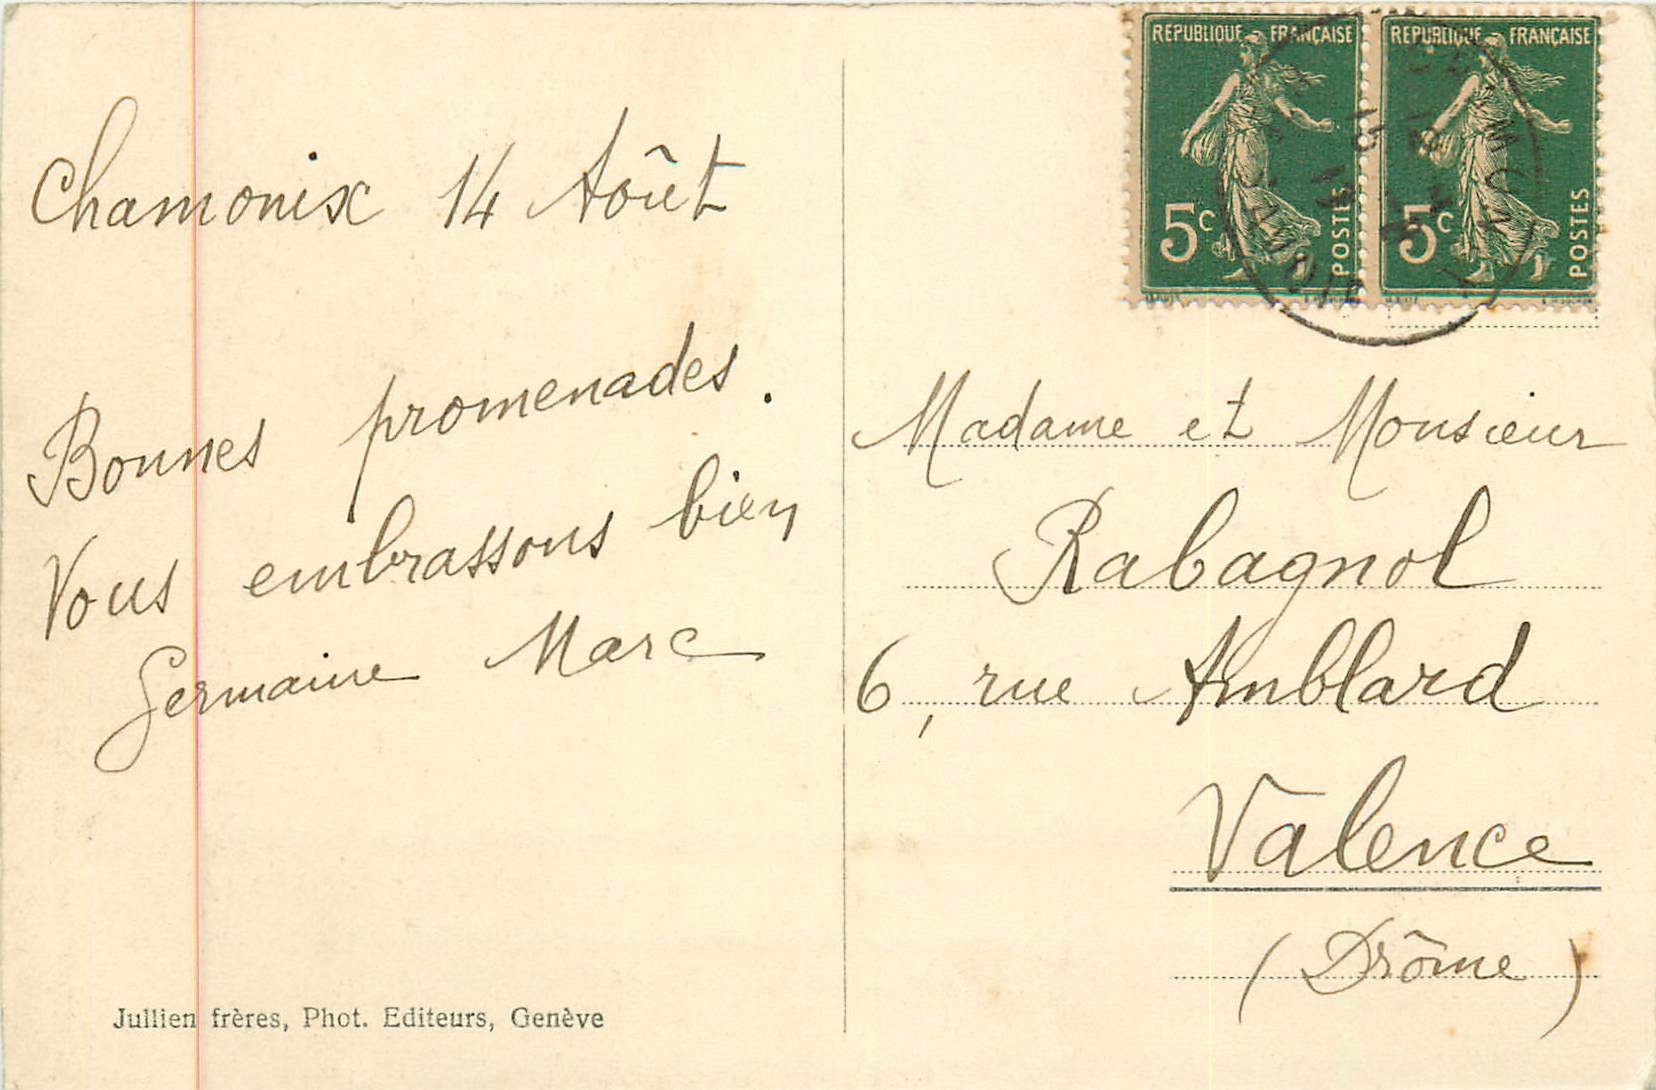 Chamonix 14 Août
Bonnes promenades.
Vous embrassons bien
Germaine Marc
Jullien frères, Phot. Editeurs, Genève
REPUBLIQUE FRANÇAISE
5c
POSTES
REPUBLIQUE FRANÇAISE
5c
POSTES
Madame et Monsieur
Rabagnol
6, rue Amblard
Valence
(Drôme)